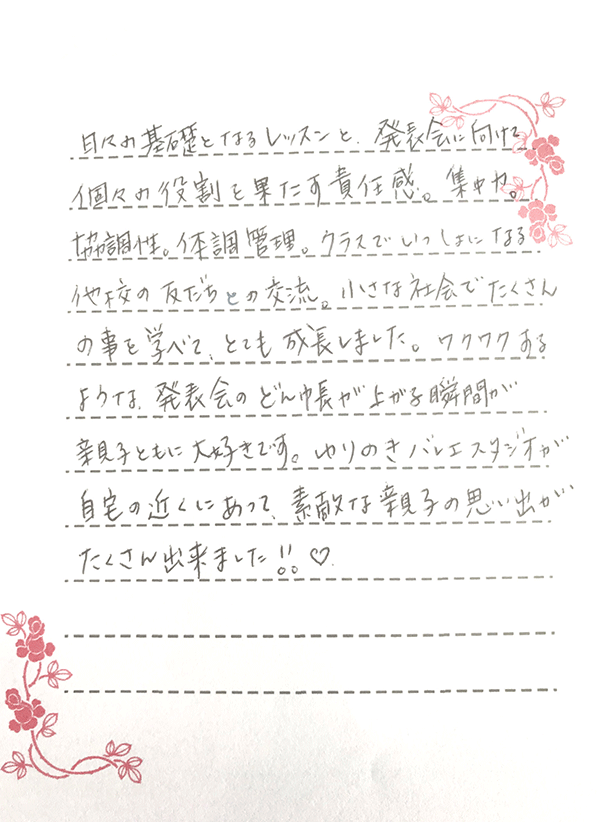 日々の基礎となるレッスンと、発表会に向けて
個々の役割を果たす責任感。集中力。
協調性。体調管理。クラスでいっしょになる
他校の友だちとの交流。小さな社会でたくさん
の事を学べて、とても成長しました。ワクワクする
ような、発表会のどん帳が上がる瞬間が
親子ともに大好きです。ゆりのきバレエスタジオが
自宅の近くにあって、素敵な親子の思い出が
たくさん出来ました!!♡